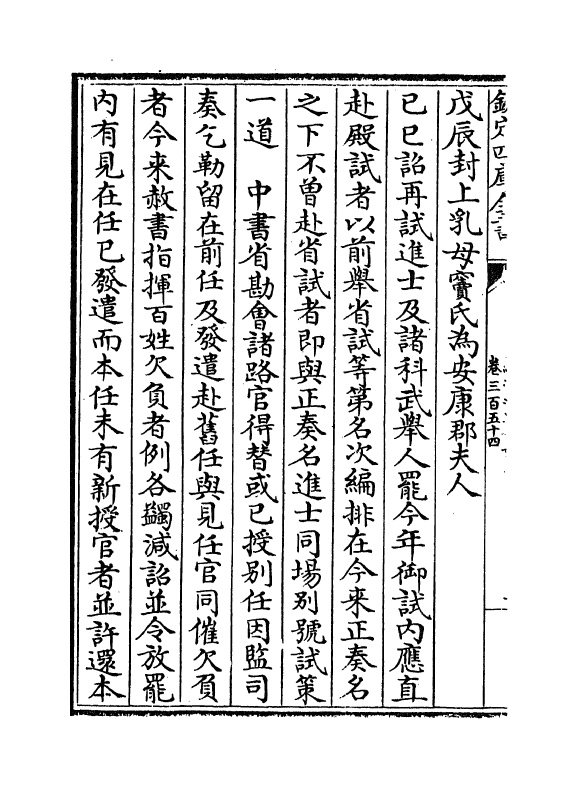 欽定四庫全書
卷三百五十四
戊辰封上乳母竇氏為安康郡夫人
已巳詔再試進士及諸科武舉人罷今年御試内應直
赴殿試者以前舉省試等第名次編排在今来正奏名
之下不曽赴省試者即與正奏名進士同場别號試策
一道　中書省勘會諸路官得替或已授别任因監司
奏乞勒留在前任及發遣赴舊任與見任官同催欠負
者今来赦書指揮百姓欠負者例各蠲減詔並令放罷
内有見在任已發遣而本任未有新授官者並許還本